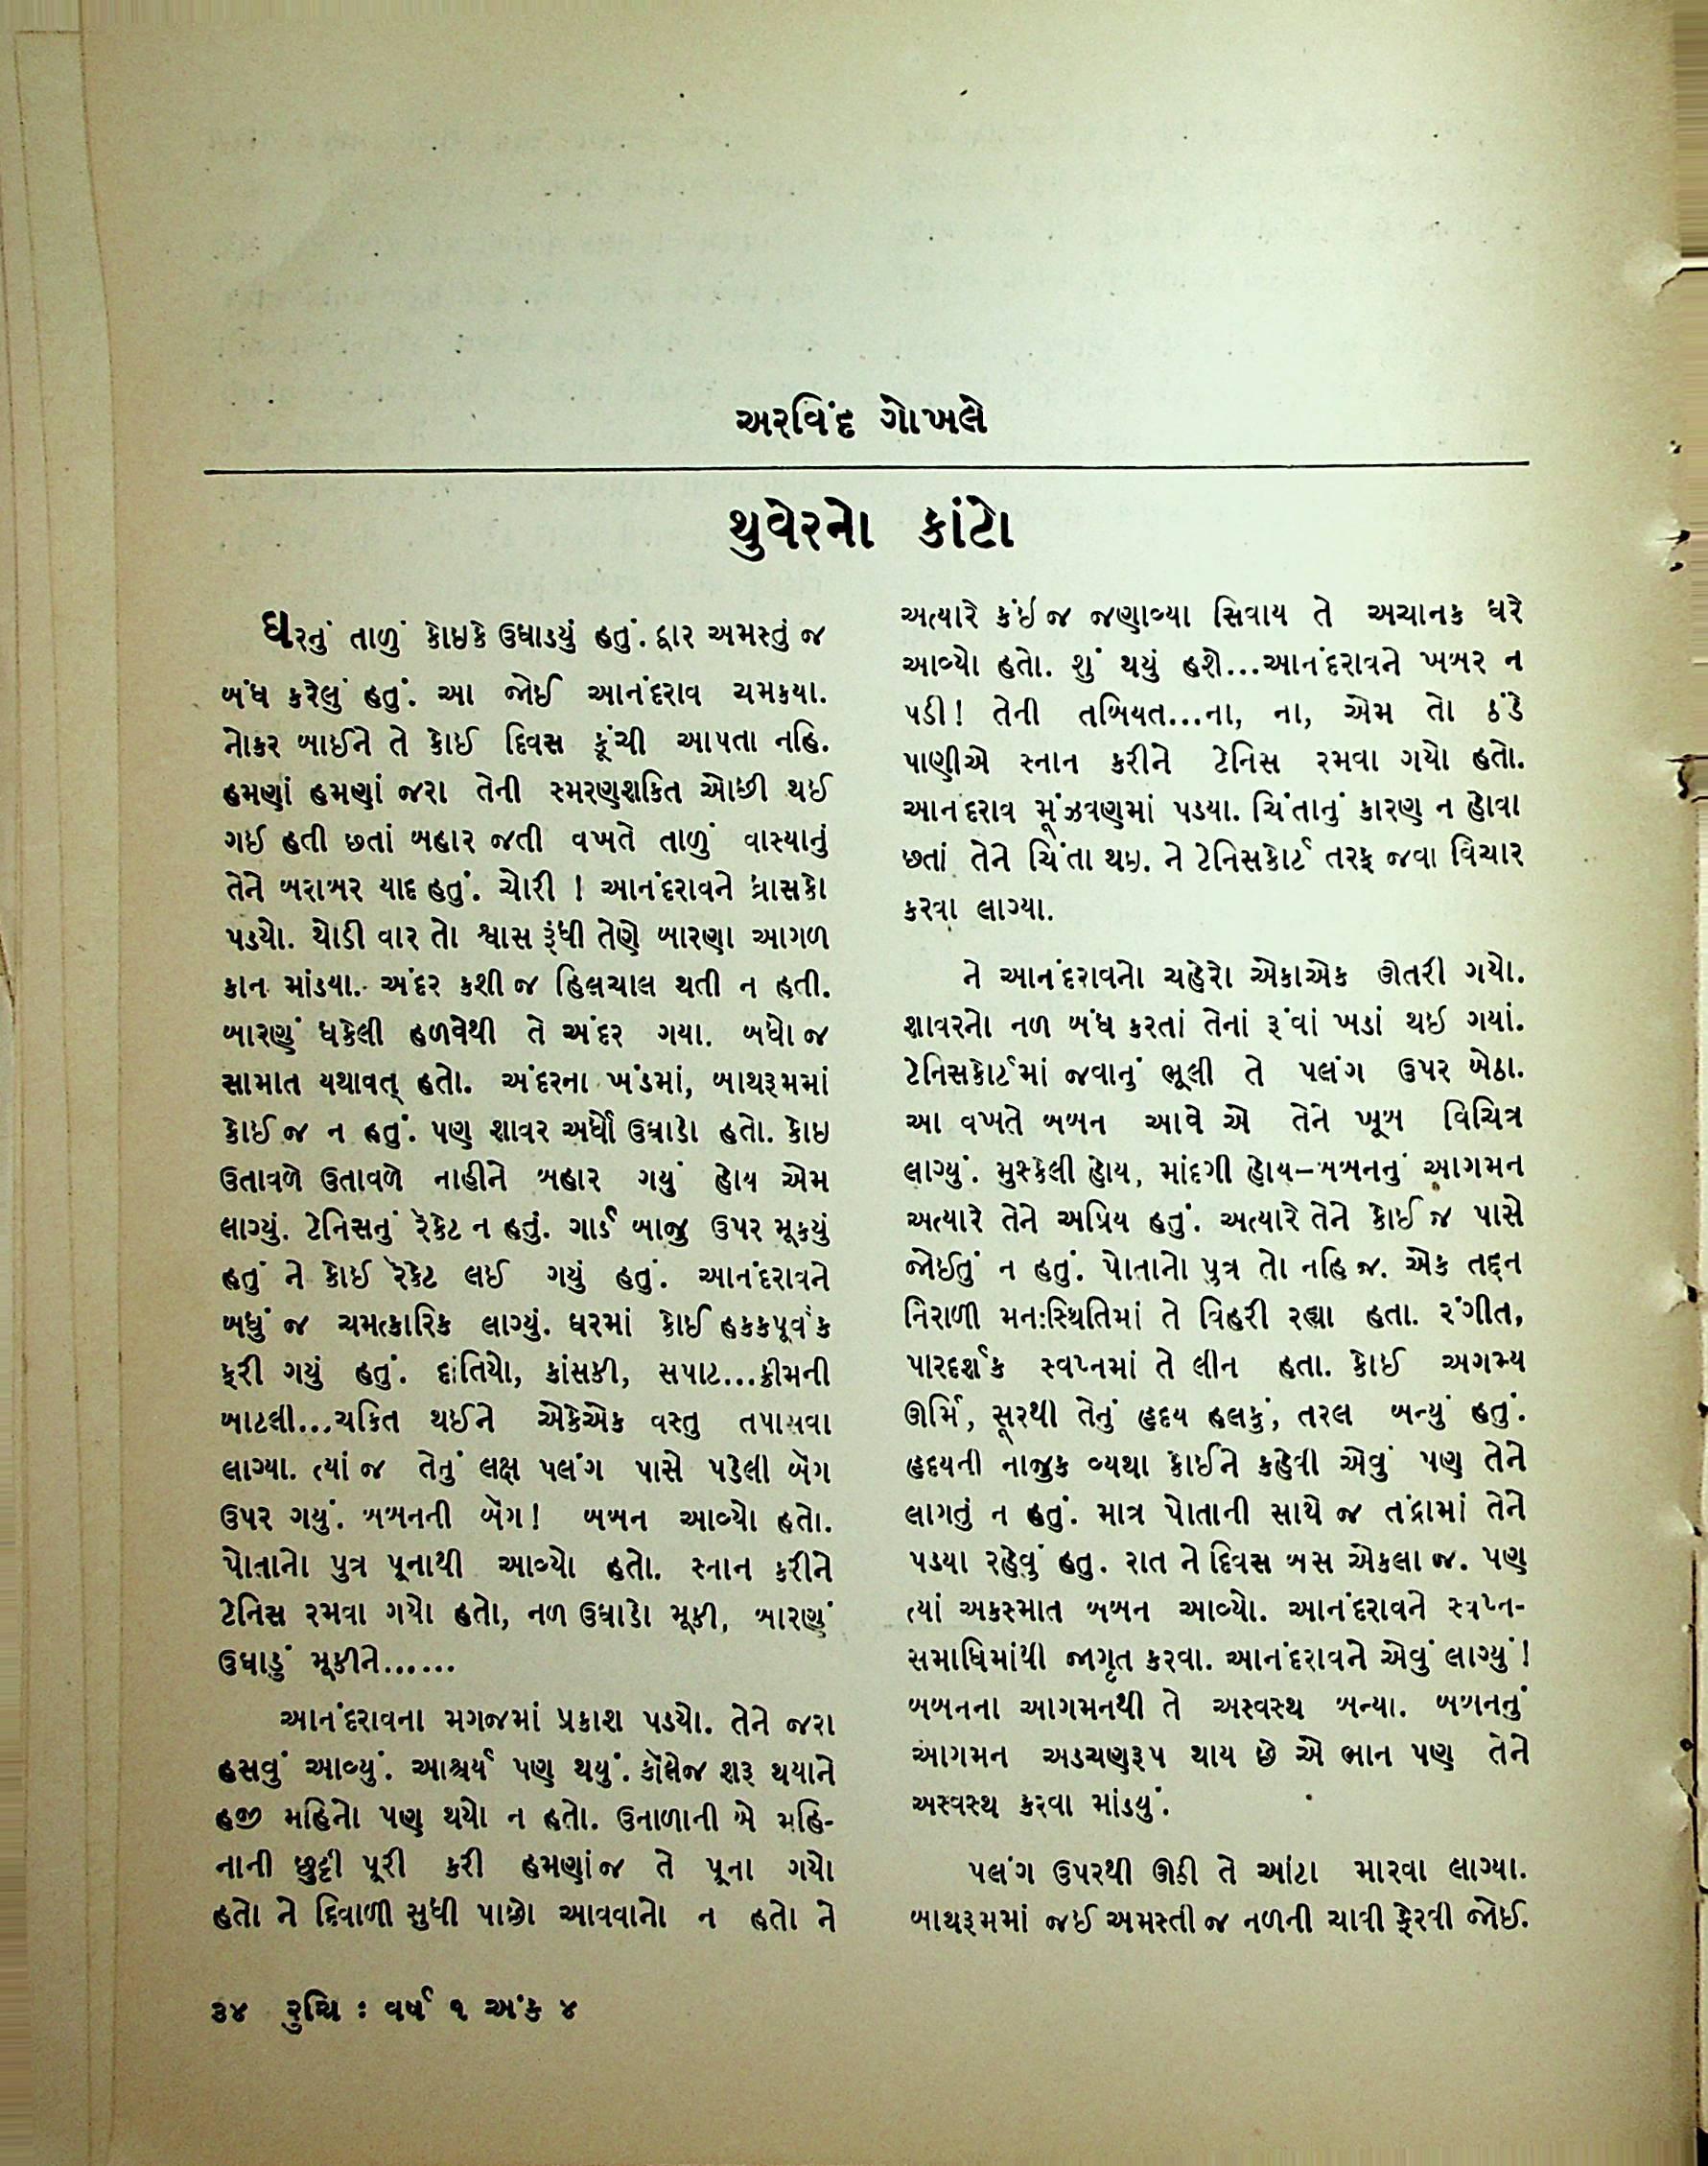 અરવિંદ ગોખલે
થુવેરનો કાંટો
ઘરનું તાળું કોઇકે ઉઘાડયું હતું. દ્વાર અમસ્તું જ
બંધ કરેલું હતું. આ જોઈ આનંદરાવ ચમકયા.
નોકર બાઈને તે કોઈ દિવસ કૂંચી આપતા નહિ.
હમણાં હમણાં જરા તેની સ્મરણશકિત ઓછી થઈ
ગઈ હતી છતાં બહાર જતી વખતે તાળું વાસ્યાનું
તેને બરાબર યાદ હતું. ચોરી ! આનંદરાવને ધ્રાસકો
પડયો. થોડી વાર તો શ્વાસ રૂંધી તેણે બારણા આગળ
કાન માંડયા. અંદર કશી જ હિલચાલ થતી ન હતી.
બારણું ધકેલી હળવેથી તે અંદર ગયા. બધો જ
સામાત યથાવત્ હતો. અંદરના ખંડમાં, બાથરૂમમાં
કોઈ જ ન હતું. પણ શાવર અર્ધો ઉઘાડો હતો. કોઇ
ઉતાવળે ઉતાવળે નાહીને બહાર ગયું હોય એમ
લાગ્યું. ટેનિસનું રેકેટ ન હતું. ગાર્ડ બાજુ ઉપર મૂકયું
હતું ને કોઈ રેકેટ લઈ ગયું હતું. આનંદરાવને
બધું જ ચમત્કારિક લાગ્યું. ઘરમાં કોઈ હકકપૂર્વક
ફરી ગયું હતું. દાંતિયો, કાંસકી, સપાટ...ક્રીમની
બાટલી...ચકિત થઈને એકેએક વસ્તુ તપાસવા
લાગ્યા. ત્યાં જ તેનું લક્ષ પલંગ પાસે પડેલી બેંગ
ઉપર ગયું. બબનની બેંગ! બબન આવ્યો હતો.
પોતાનો પુત્ર પૂનાથી આવ્યો હતો. સ્નાન કરીને
ટેનિસ રમવા ગયો હતો, નળ ઉઘાડો મૂકી, બારણું
ઉઘાડું મૂકીને......
આનંદરાવના મગજમાં પ્રકાશ પડયો. તેને જરા
હસવું આવ્યું. આશ્ચર્ય પણ થયું. કૉલેજ શરૂ થયાને
હજી મહિનો પણ થયો ન હતો. ઉનાળાની બે મહિ-
નાની છુટ્ટી પૂરી કરી હમણાંજ તે પૂના ગયો
હતો ને દિવાળી સુધી પાછો આવવાનો ન હતો ને
અત્યારે કંઈ જ જણાવ્યા સિવાય તે અચાનક ઘરે
આવ્યો હતો. શું થયું હશે...આનંદરાવને ખબર ન
પડી! તેની તબિયત...ના, ના, એમ તો ઠંડે
પાણીએ સ્નાન કરીને ટેનિસ રમવા ગયો હતો.
આનંદરાવ મૂંઝવણમાં પડયા. ચિંતાનું કારણ ન હોવા
છતાં તેને ચિંતા થઇ. ને ટેનિસકોર્ટ તરફ જવા વિચાર
કરવા લાગ્યા.
ને આનંદરાવનો ચહેરો એકાએક ઊતરી ગયો.
શાવરનો નળ બંધ કરતાં તેનાં રૂંવાં ખડાં થઈ ગયાં.
ટેનિસકોર્ટમાં જવાનું ભૂલી તે પલંગ ઉપર બેઠા.
આ વખતે બબન આવે એ તેને ખૂબ વિચિત્ર
લાગ્યું. મુસ્કેલી હોય, માંદગી હોય–બબનનું આગમન
અત્યારે તેને અપ્રિય હતું. અત્યારે તેને કોઈ જ પાસે
જોઈતું ન હતું. પોતાનો પુત્ર તો નહિ જ. એક તદ્દન
નિરાળી મનઃસ્થિતિમાં તે વિહરી રહ્યા હતા. રંગીત,
પારદર્શક સ્વપ્નમાં તે લીન હતા. કોઈ અગમ્ય
ઊર્મિ, સૂરથી તેનું હૃદય હલકું, તરલ બન્યું હતું.
હૃદયની નાજુક વ્યથા કોઈને કહેવી એવું પણ તેને
લાગતું ન હતું. માત્ર પોતાની સાથે જ તંદ્રામાં તેને
પડયા રહેવું હતુ. રાત ને દિવસ બસ એકલા જ. પણ
ત્યાં અકસ્માત બબન આવ્યો. આનંદરાવને સ્વપ્ન-
સમાધિમાંથી જાગૃત કરવા. આનંદરાવને એવું લાગ્યું!
બબનના આગમનથી તે અસ્વસ્થ બન્યા. બબનનું
આગમન અડચણરૂપ થાય છે એ ભાન પણ તેને
અસ્વસ્થ કરવા માંડયું.
પલંગ ઉપરથી ઊઠી તે આંટા મારવા લાગ્યા.
બાથરૂમમાં જઈ અમસ્તી જ નળની ચાવી ફેરવી જોઈ.
૩૪ રુચિ : વર્ષ ૧ અંક ૪